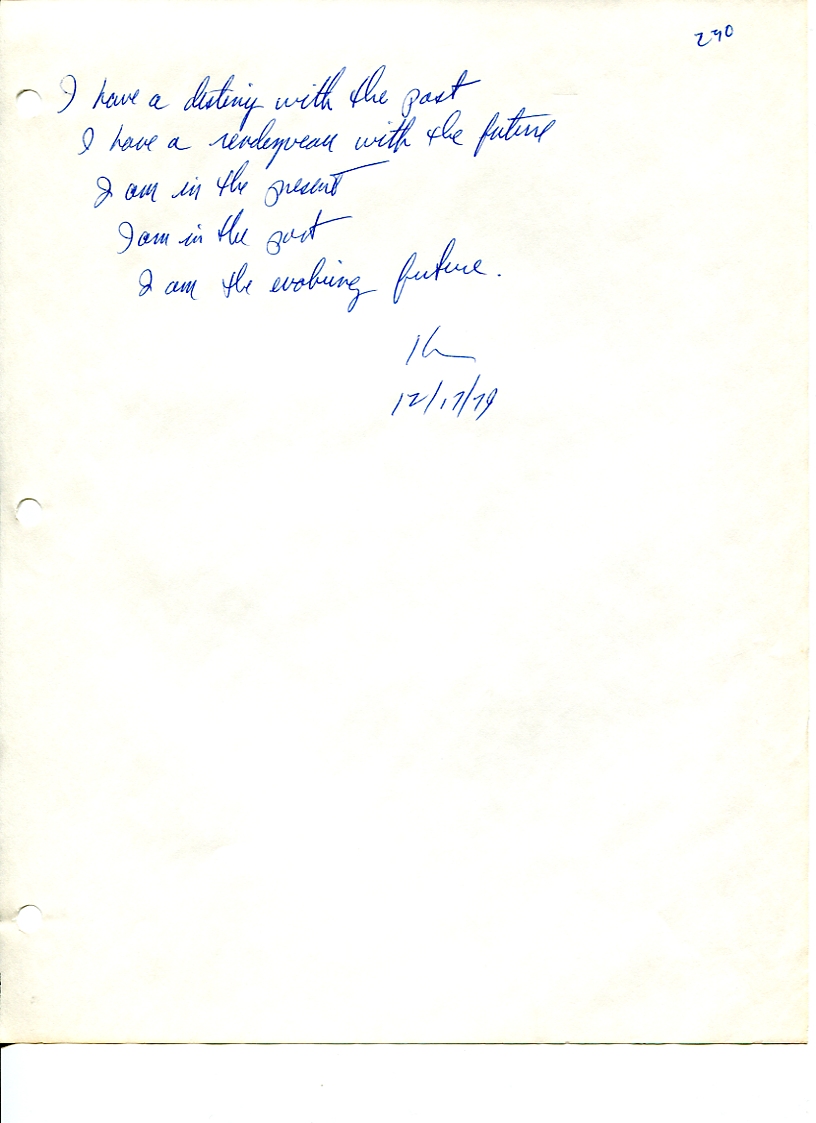 290
I have a destiny with the past
I have a rendezveau with the future
I am in the present
I am in the past
I am the evolving future.
12/17/79